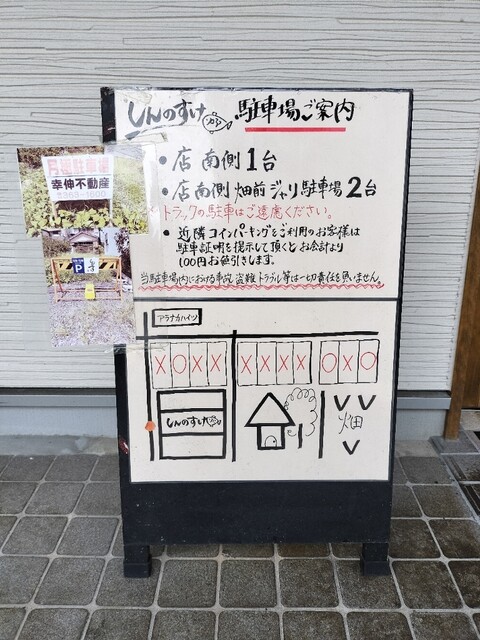 しんのすけ 駐車場ご案内
• 店 南側 1台
• 店南側 畑前ジャリ駐車場 2台
トラックの駐車はご遠慮ください。
• 近隣コインパーキングをご利用のお客様は
駐車証明を提示して頂くとお会計より
100円お値引きします。
当駐車場内における事故、盗難、トラブル等は一切責任を負いません。
月極駐車場
幸伸不動産
P
アラナカハイツ
X O X X X X X X O X O
しんのすけ
畑